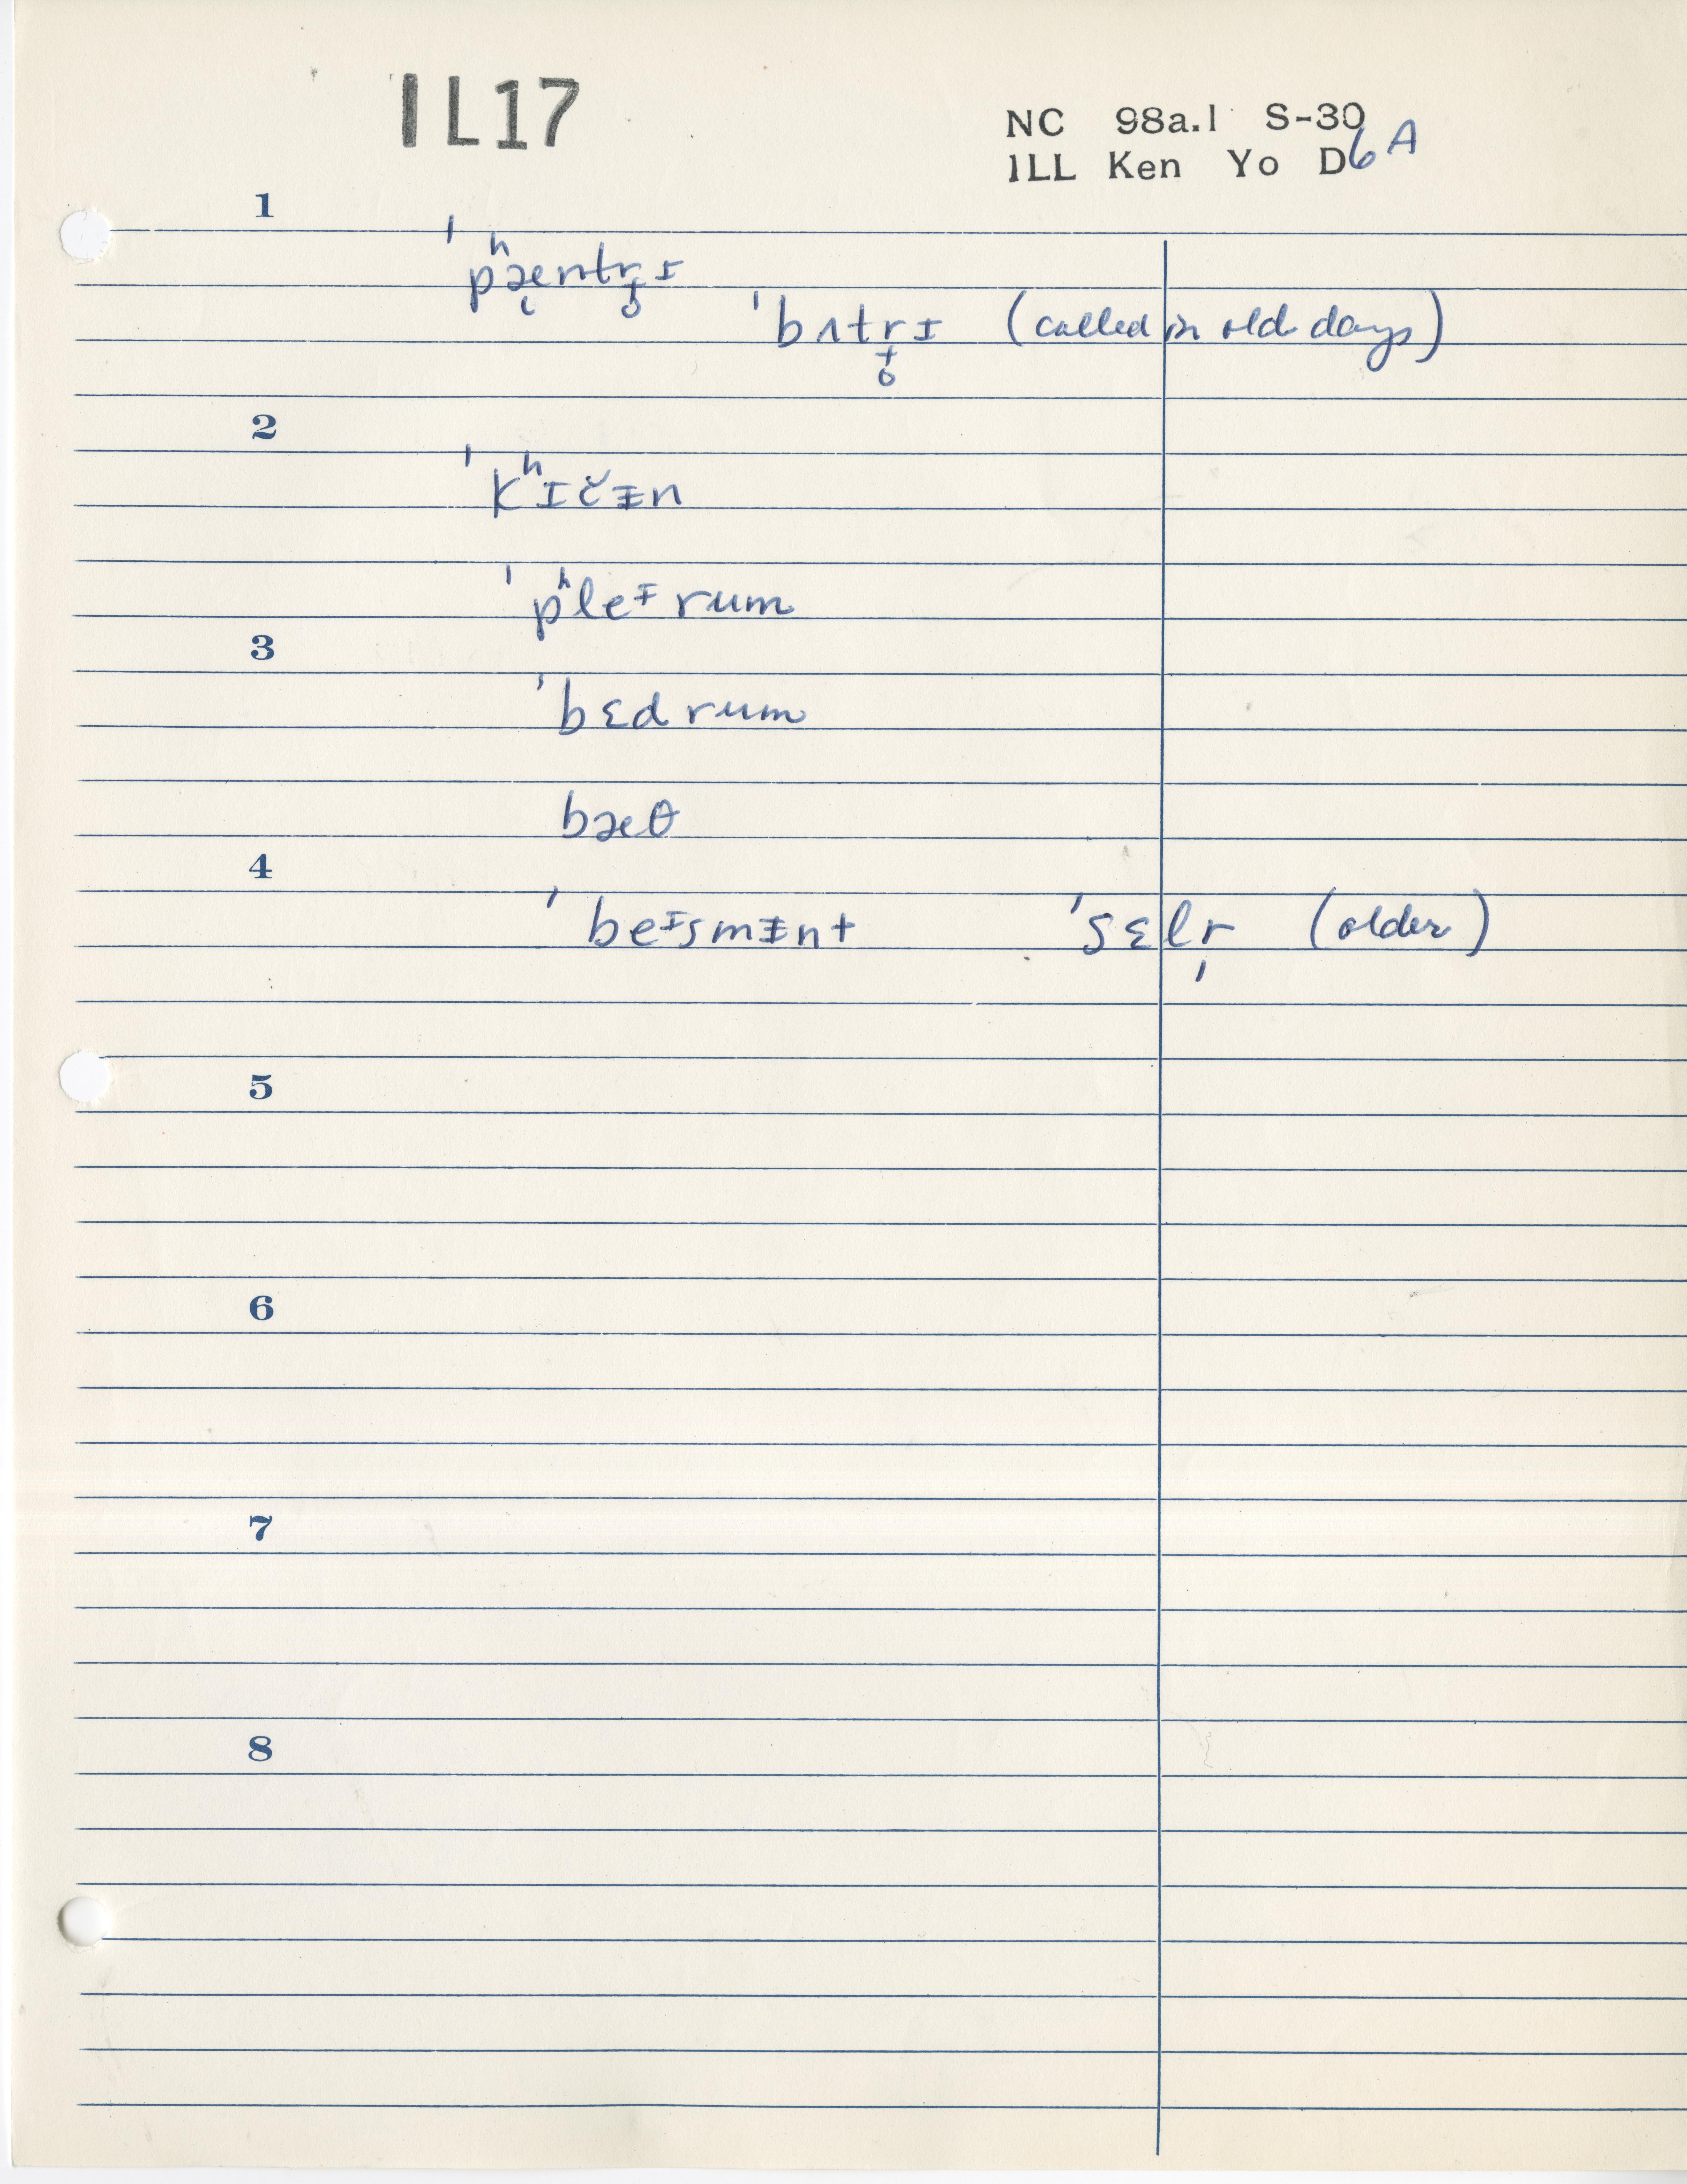 IL17
NC 98a.1 S-30
ILL Ken Yo D6A
1
ˈpʰæntr̥ɪ
ˈbʌtr̥ɪ (called in old days)
2
ˈkʰɪčᵻn
ˈpʰleᵻrum
3
ˈbɛdrum
bæθ
4
ˈbeᵻsmᵻnt ˈsɛlr̩ (older)
5
6
7
8